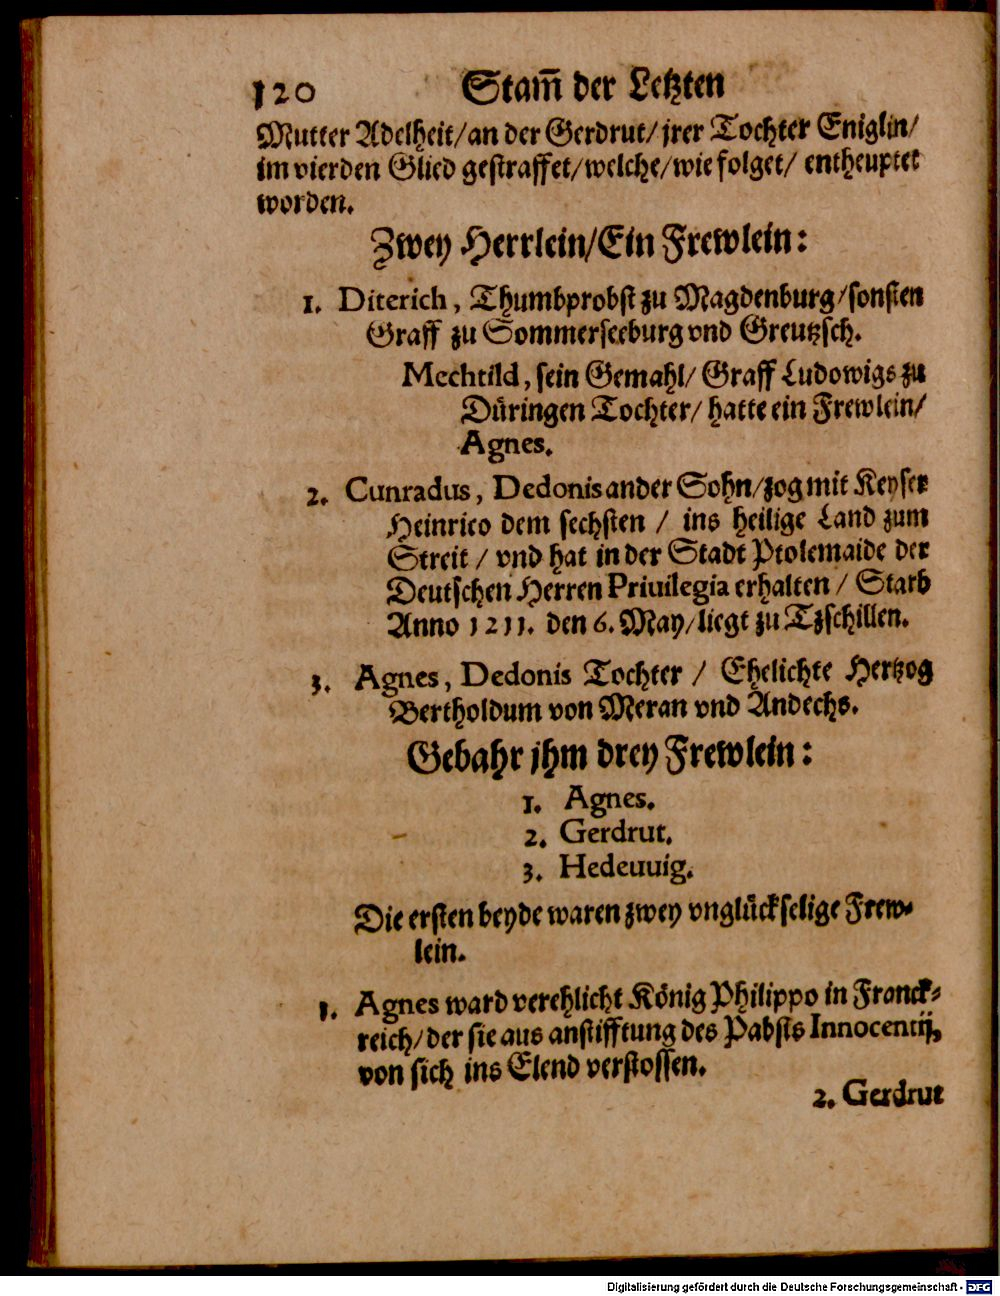 120 Stam̃ der Letzten
Mutter Adelheit/an der Gerdrut/jrer Tochter Eniglin/
im vierden Glied gestraffet/welche/wie folget/ entheuptet
worden.
Zwey Herrlein/Ein Frewlein:
1. Diterich, Thumbprobst zu Magdenburg/sonsten
Graff zu Sommerseeburg vnd Greutzsch.
Mechtild, sein Gemahl/ Graff Ludowigs zu
Düringen Tochter/ hatte ein Frewlein/
Agnes.
2. Cunradus, Dedonis ander Sohn/zog mit Keyser
Heinrico dem sechsten / ins heilige Land zum
Streit / vnd hat in der Stadt Ptolemaide der
Deutschen Herren Priuilegia erhalten / Starb
Anno 1211. den 6. May/liegt zu Tzschillen.
3. Agnes, Dedonis Tochter / Ehelichte Hertzog
Bertholdum von Meran vnd Andechs.
Gebahr jhm drey Frewlein:
1. Agnes.
2. Gerdrut.
3. Hedeuuig.
Die ersten beyde waren zwey vnglückselige Frew-
lein.
1. Agnes ward verehlicht König Philippo in Franck-
reich/der sie aus anstifftung des Pabsts Innocentij,
von sich ins Elend verstossen.
2. Gerdrut
Digitalisierung gefördert durch die Deutsche Forschungsgemeinschaft - DFG